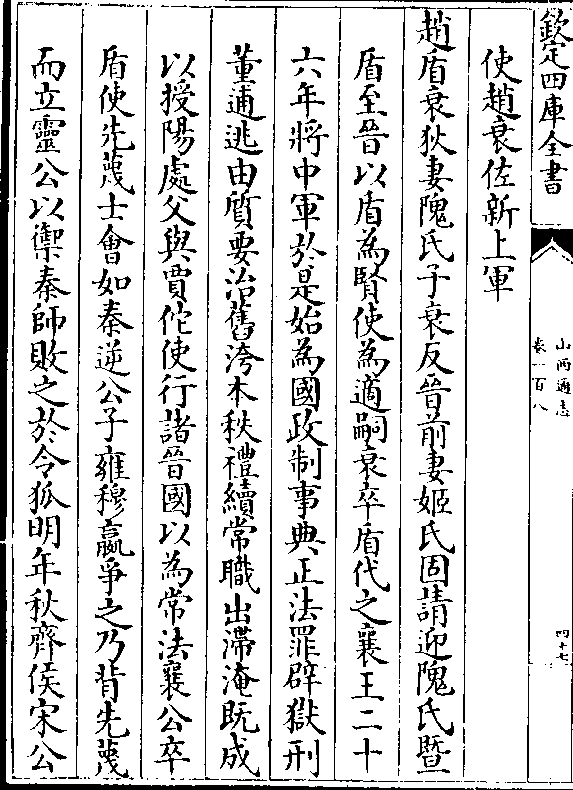 欽定四庫全書
山西通志
卷一百八
四十七
使趙衰佐新上軍
趙盾衰狄妻隗氏子衰反晉前妻姬氏固請迎隗氏暨
盾至晉以盾為賢使為適嗣衰卒盾代之襄王二十
六年將中軍於是始為國政制事典正法罪辟獄刑
董逋逃由質要治舊洿本秩禮續常職出滯淹既成
以授陽處父與賈佗使行諸晉國以為常法襄公卒
盾使先蔑士會如秦逆公子雍穆嬴爭之乃背先蔑
而立靈公以禦秦師敗之於令狐明年秋齊侯宋公